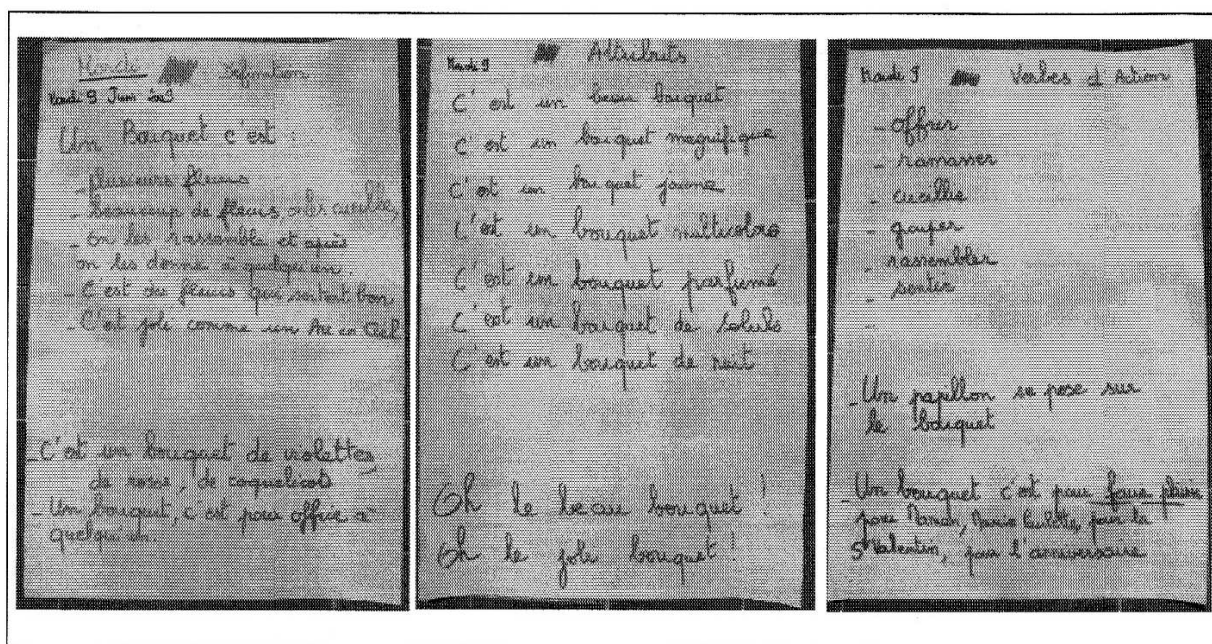 Mardi Définition
Mardi 9 Juin
Un Bouquet c'est :
- plusieurs fleurs
- beaucoup de fleurs, on les cueille,
- on les rassemble et après
on les donne à quelqu'un.
- C'est des fleurs qui sentent bon
- C'est joli comme un Arc en Ciel
- C'est un bouquet de violettes
de roses, de coquelicots
- Un bouquet, c'est pour offrir à
quelqu'un.
Mardi 9 Attributs
C'est un beau bouquet
C'est un bouquet magnifique
C'est un bouquet jaune
C'est un bouquet multicolore
C'est un bouquet parfumé
C'est un bouquet de
C'est un bouquet de nuit
Oh le beau bouquet !
Oh le joli bouquet !
Mardi 9 Verbes d'Action
- offrir
- ramasser
- cueillir
- couper
- rassembler
- sentir
-
- Un papillon se pose sur
le bouquet
- Un bouquet c'est pour faire plaisir
pour Maman, pour la
St Valentin, pour l'anniversaire